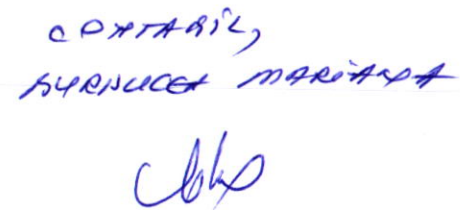 CONTABIL,
BURDUCEA MARIANA